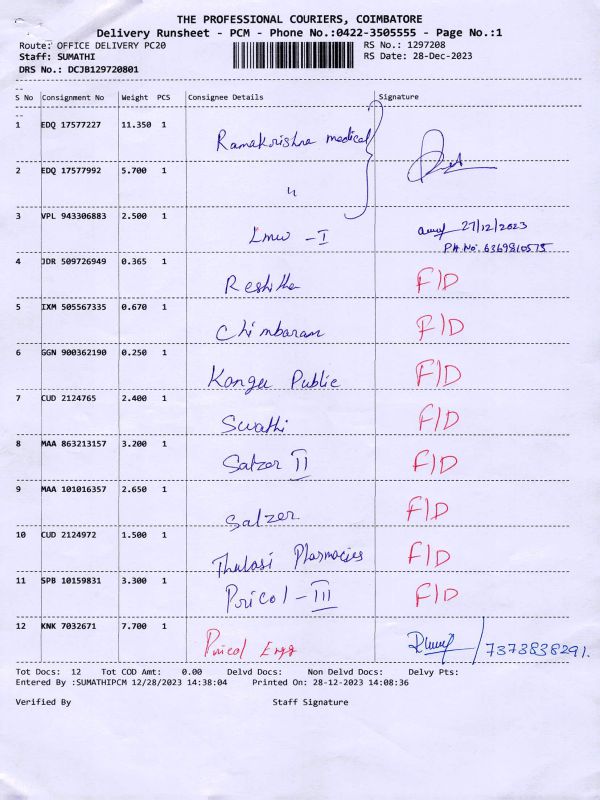 THE PROFESSIONAL COURIERS, COIMBATORE
Delivery Runsheet - PCM - Phone No.:0422-3505555 - Page No.:1
Route: OFFICE DELIVERY PC20 RS No.: 1297208
Staff: SUMATHI RS Date: 28-Dec-2023
DRS No.: DCJB129720801
S No Consignment No Weight PCS Consignee Details Signature
1 EDQ 17577227 11.350 1 Ramakrishna medical
2 EDQ 17577992 5.700 1 "
3 VPL 943306883 2.500 1 Lmw - I 27/12/2023
PH.No. 6369810575
4 JDR 509726949 0.365 1 Reshitha F/D
5 IXM 505567335 0.670 1 Chimbaram F/D
6 GGN 900362190 0.250 1 Kongu Public F/D
7 CUD 2124765 2.400 1 Swathi F/D
8 MAA 863213157 3.200 1 Salzer II F/D
9 MAA 101016357 2.650 1 Salzer F/D
10 CUD 2124972 1.500 1 Thulasi Pharmacies F/D
11 SPB 10159831 3.300 1 Pricol - III F/D
12 KNK 7032671 7.700 1 Pricol Engg 7373838291.
Tot Docs: 12 Tot COD Amt: 0.00 Delvd Docs: Non Delvd Docs: Delvy Pts:
Entered By :SUMATHIPCM 12/28/2023 14:38:04 Printed On: 28-12-2023 14:08:36
Verified By Staff Signature